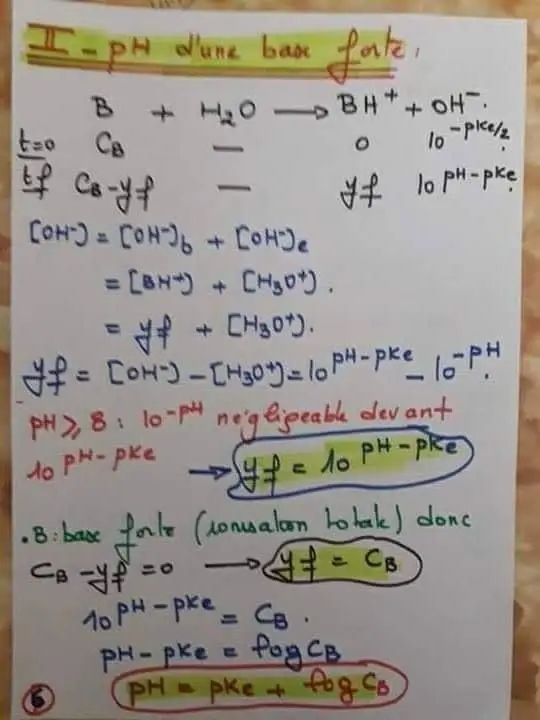 II - pH d'une base forte.
B + H₂O ⟶ BH⁺ + OH⁻.
t=0 CB — 0 10^-pKe/2
tf CB-yf — yf 10^pH-pKe.
[OH⁻] = [OH⁻]b + [OH⁻]e
= [BH⁺] + [H₃O⁺].
= yf + [H₃O⁺].
yf = [OH⁻] - [H₃O⁺] = 10^pH-pKe - 10^-pH.
pH ⩾ 8 : 10^-pH négligeable devant
10^pH-pKe → yf = 10^pH-pKe
. B : base forte (ionisation totale) donc
CB - yf = 0 ⟶ yf = CB
10^pH-pKe = CB.
pH - pKe = log CB
pH = pKe + log CB
6